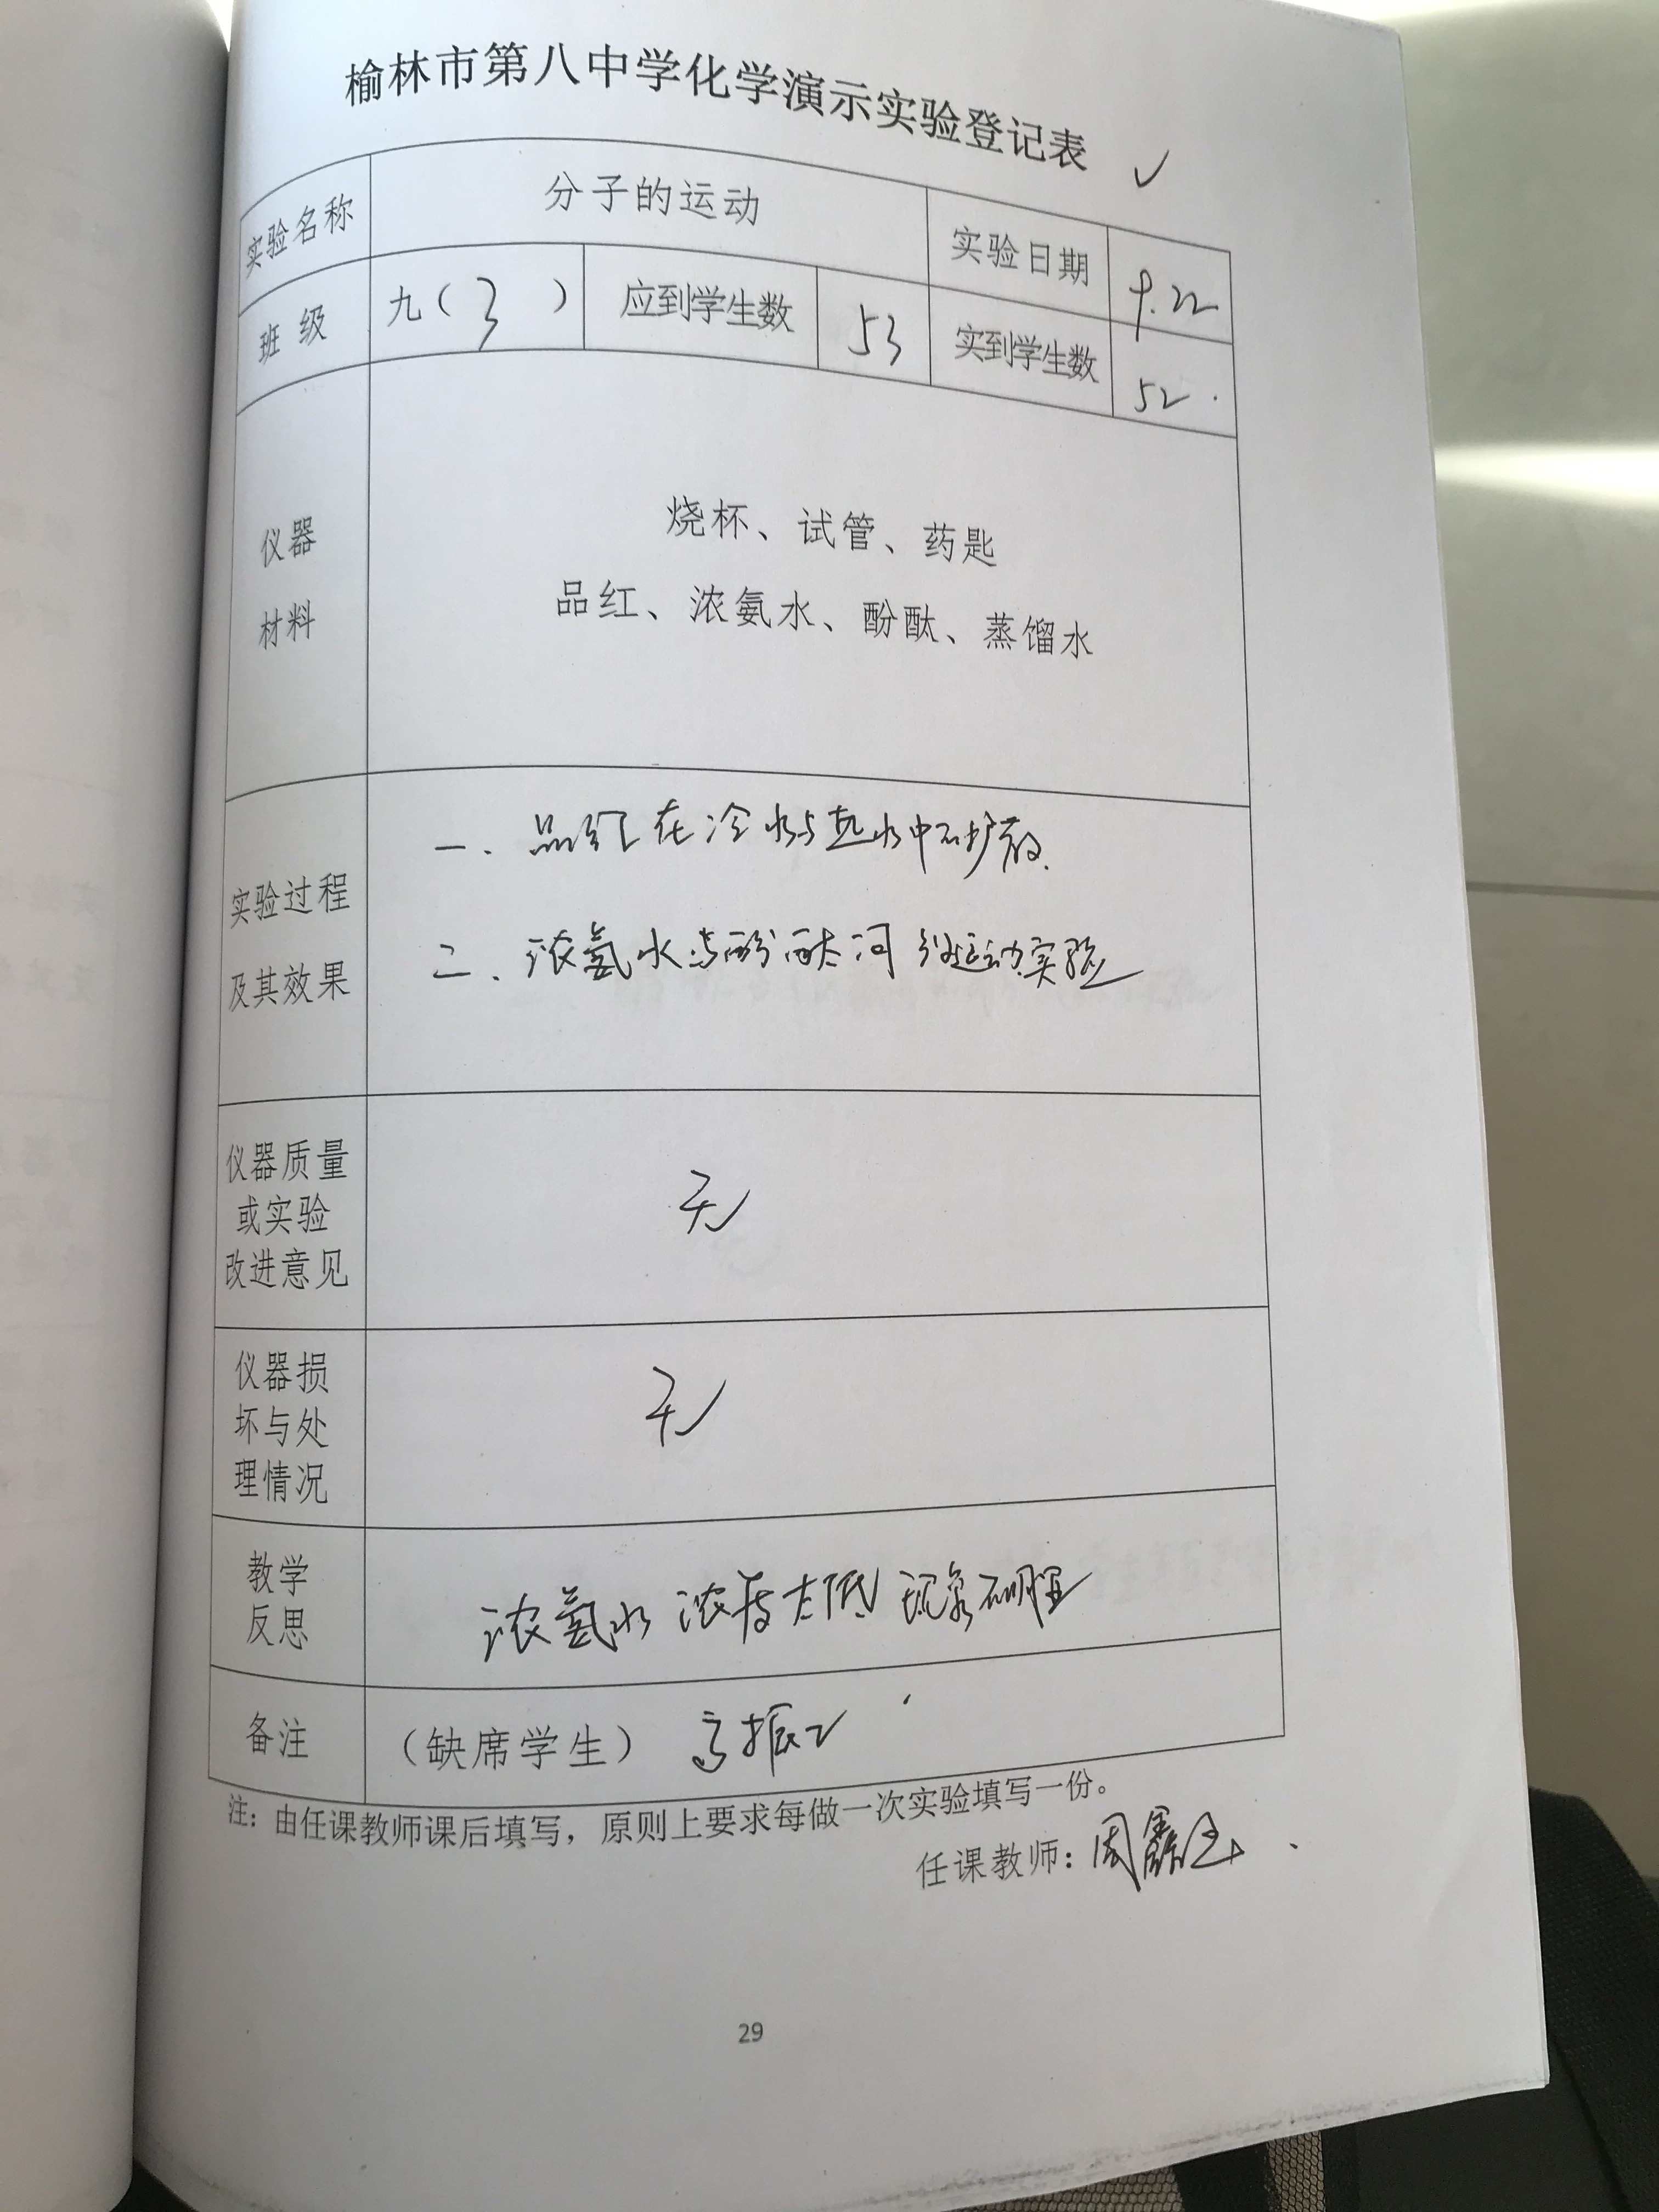 榆林市第八中学化学演示实验登记表 ✓
实验名称 分子的运动 实验日期 9.22
班 级 九（3 ） 应到学生数 53 实到学生数 52
仪器
材料
烧杯、试管、药匙
品红、浓氨水、酚酞、蒸馏水
实验过程
及其效果
一、品红在冷水与热水中的扩散.
二、浓氨水与酚酞间分运动实验
仪器质量
或实验
改进意见
无
仪器损
坏与处
理情况
无
教学
反思
浓氨水浓度太低 现象不明显
备注 （缺席学生） 高振
注：由任课教师课后填写，原则上要求每做一次实验填写一份。
任课教师：周鑫
29